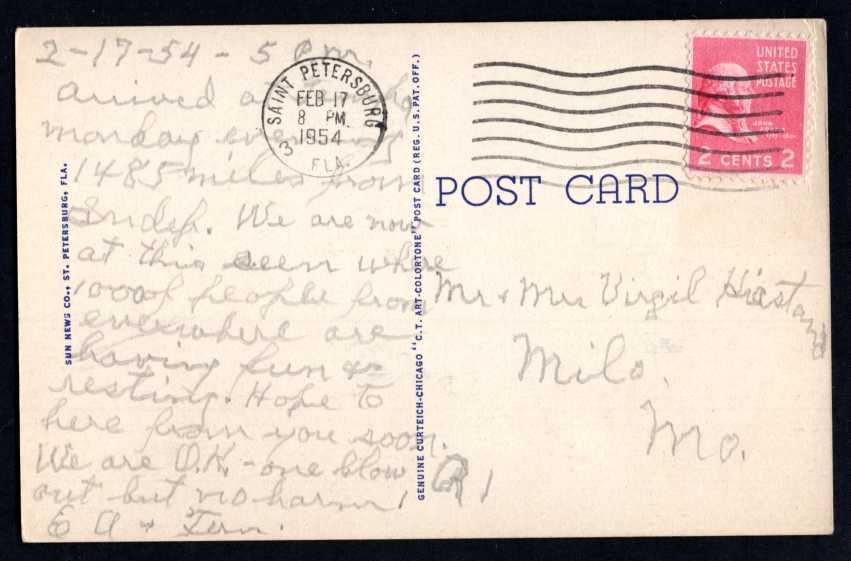 2-17-54 - 5 P.m.
arrived at Tampa
monday evening
1485 miles from
Indep. We are now
at this seen where
1000 of people from
everywhere are
having fun &
resting. Hope to
here from you soon.
We are O.K. - one blow
out but no harm!
E A & Fern.
SAINT PETERSBURG
FEB 17
8 PM
1954
3 FLA.
SUN NEWS CO., ST. PETERSBURG, FLA.
GENUINE CURTEICH-CHICAGO "C.T. ART-COLORTONE" POST CARD (REG. U.S. PAT. OFF.)
UNITED
STATES
POSTAGE
JOHN
2 CENTS 2
POST CARD
Mr & Mrs Virgil Hiastand
Milo,
Mo.
R 1